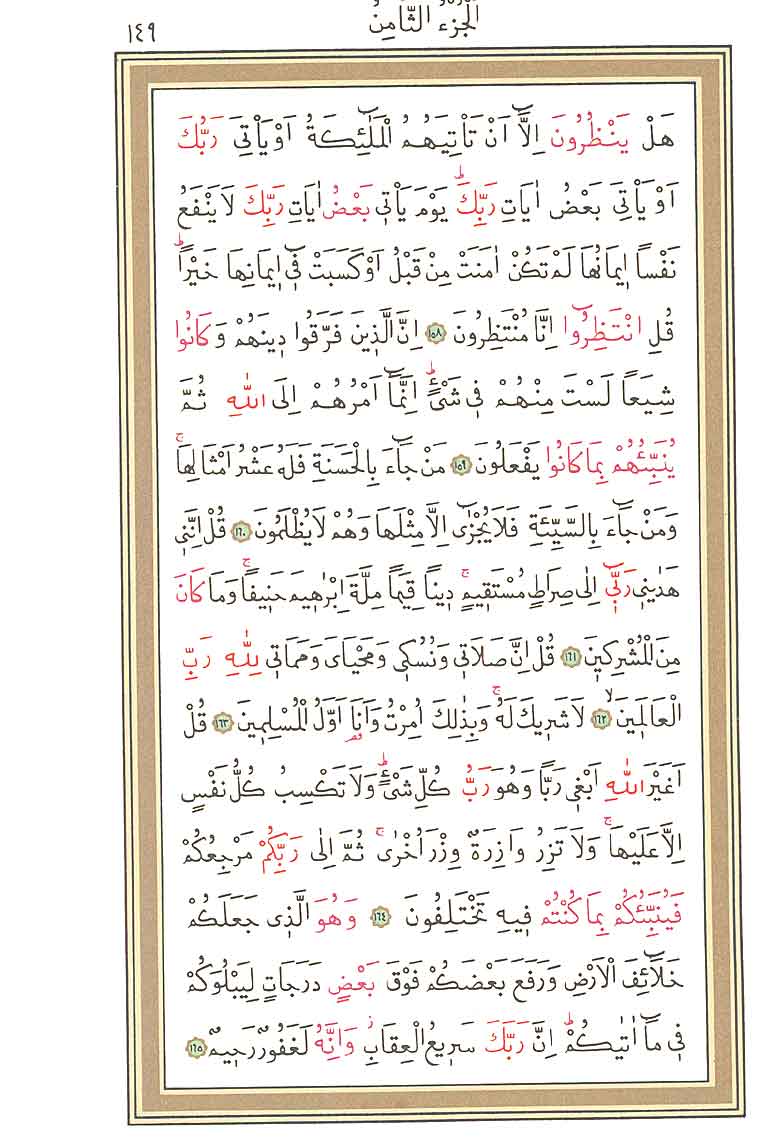 ١٤٩
الجزء الثامن
هَلْ يَنْظُرُونَ اِلَّٓا اَنْ تَأْتِيَهُمُ الْمَلٰٓئِكَةُ اَوْ يَأْتِيَ رَبُّكَ
اَوْ يَأْتِيَ بَعْضُ اٰيَاتِ رَبِّكَۜ يَوْمَ يَأْت۪ي بَعْضُ اٰيَاتِ رَبِّكَ لَا يَنْفَعُ
نَفْساً ا۪يمَانُهَا لَمْ تَكُنْ اٰمَنَتْ مِنْ قَبْلُ اَوْ كَسَبَتْ ف۪ٓي ا۪يمَانِهَا خَيْراًۜ
قُلِ انْتَظِرُٓوا اِنَّا مُنْتَظِرُونَ ١٥٨ اِنَّ الَّذ۪ينَ فَرَّقُوا د۪ينَهُمْ وَكَانُوا
شِيَعاً لَسْتَ مِنْهُمْ ف۪ي شَيْءٍۜ اِنَّمَٓا اَمْرُهُمْ اِلَى اللّٰهِ ثُمَّ
يُنَبِّئُهُمْ بِمَا كَانُوا يَفْعَلُونَ ١٥٩ مَنْ جَٓاءَ بِالْحَسَنَةِ فَلَهُ عَشْرُ اَمْثَالِهَاۚ
وَمَنْ جَٓاءَ بِالسَّيِّئَةِ فَلَا يُجْزٰٓى اِلَّا مِثْلَهَا وَهُمْ لَا يُظْلَمُونَ ١٦٠ قُلْ اِنَّن۪ي
هَدٰين۪ي رَبّ۪ٓي اِلٰى صِرَاطٍ مُسْتَق۪يمٍۚ د۪يناً قِيَماً مِلَّةَ اِبْرٰه۪يمَ حَن۪يفاًۚ وَمَا كَانَ
مِنَ الْمُشْرِك۪ينَ ١٦١ قُلْ اِنَّ صَلَات۪ي وَنُسُك۪ي وَمَحْيَايَ وَمَمَات۪ي لِلّٰهِ رَبِّ
الْعَالَم۪ينَۙ ١٦٢ لَا شَر۪يكَ لَهُۚ وَبِذٰلِكَ اُمِرْتُ وَاَنَا۬ اَوَّلُ الْمُسْلِم۪ينَ ١٦٣ قُلْ
اَغَيْرَ اللّٰهِ اَبْغ۪ي رَباًّ وَهُوَ رَبُّ كُلِّ شَيْءٍۜ وَلَا تَكْسِبُ كُلُّ نَفْسٍ
اِلَّا عَلَيْهَاۚ وَلَا تَزِرُ وَازِرَةٌ وِزْرَ اُخْرٰىۚ ثُمَّ اِلٰى رَبِّكُمْ مَرْجِعُكُمْ
فَيُنَبِّئُكُمْ بِمَا كُنْتُمْ ف۪يهِ تَخْتَلِفُونَ ١٦٤ وَهُوَ الَّذ۪ي جَعَلَكُمْ
خَلَٓائِفَ الْاَرْضِ وَرَفَعَ بَعْضَكُمْ فَوْقَ بَعْضٍ دَرَجَاتٍ لِيَبْلُوَكُمْ
ف۪ي مَٓا اٰتٰيكُمْۜ اِنَّ رَبَّكَ سَر۪يعُ الْعِقَابِۘ وَاِنَّهُ لَغَفُورٌ رَح۪يمٌ ١٦٥